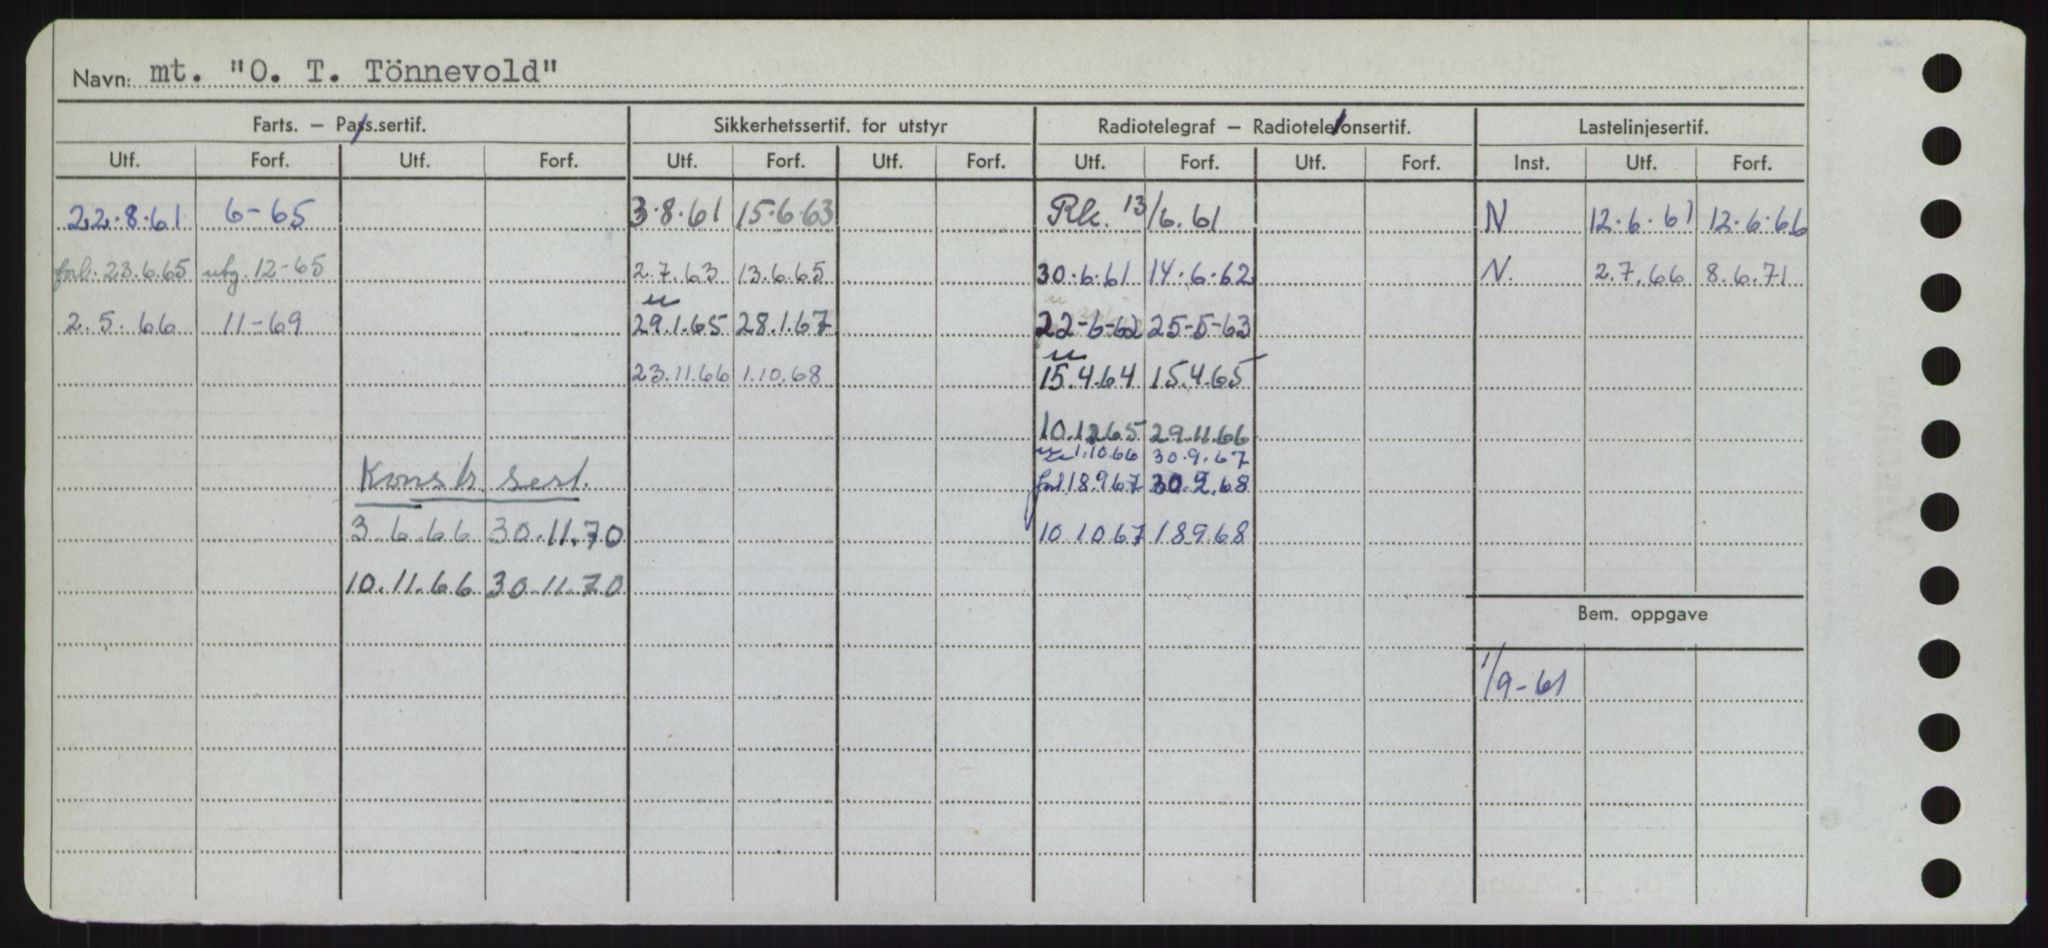 Navn: mt. "O. T. Tönnevold"
Farts. – Pass.sertif. Sikkerhetssertif. for utstyr Radiotelegraf – Radiotelefonsertif. Lastelinjesertif.
Utf. Forf. Utf. Forf. Utf. Forf. Utf. Forf. Utf. Forf. Utf. Forf. Inst. Utf. Forf.
22.8.61 6-65 3.8.61 15.6.63 Rk. 13/6.61 N 12.6.61 12.6.66
forl. 23.6.65 utg. 12-65 2.7.63 13.6.65 30.6.61 14.6.62 N. 2.7.66 8.6.71
2.5.66 11-69 29.1.65 28.1.67 22-6-62 25-5-63
23.11.66 1.10.68 15.4.64 15.4.65
10.12.65 29.11.66
1.10.66 30.9.67
Konstr sert. forl 18.9.67 30.9.68
3.6.66 30.11.70 10.10.67 18.9.68
10.11.66 30.11.70
Bem. oppgave
1/9-61